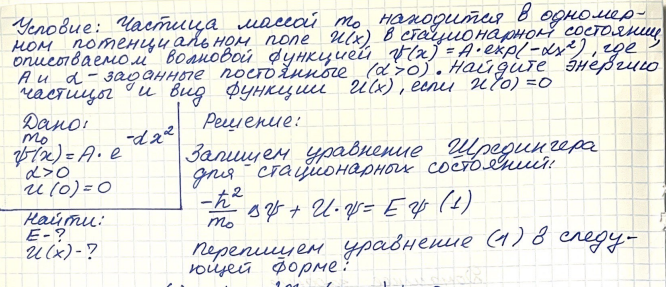 Условие: Частица массой m₀ находится в одномер-
ном потенциальном поле U(x) в стационарном состоянии,
описываемом волновой функцией ψ(x) = A·exp(-αx²), где
A и α - заданные постоянные (α>0). Найдите энергию
частицы и вид функции U(x), если U(0)=0
Дано:
m₀
ψ(x)=A·e^{-αx²}
α>0
U(0)=0
Найти:
E-?
U(x)-?
Решение:
Запишем уравнение Шредингера
для стационарных состояний:
-ħ²/m₀ Δψ + U·ψ = Eψ (1)
Перепишем уравнение (1) в следу-
ющей форме: